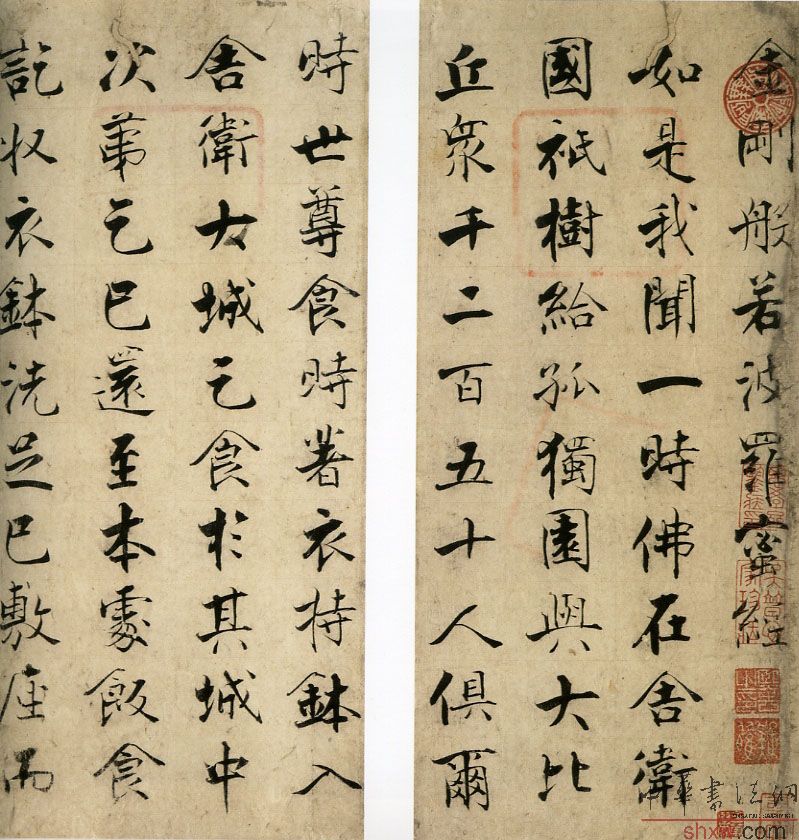 金剛般若波羅蜜經
如是我聞一時佛在舍衛
國祇樹給孤獨園與大比
丘眾千二百五十人俱爾
時世尊食時著衣持鉢入
舍衛大城乞食於其城中
次第乞已還至本處飯食
訖收衣鉢洗足已敷座而
中華書法網
shxw.com